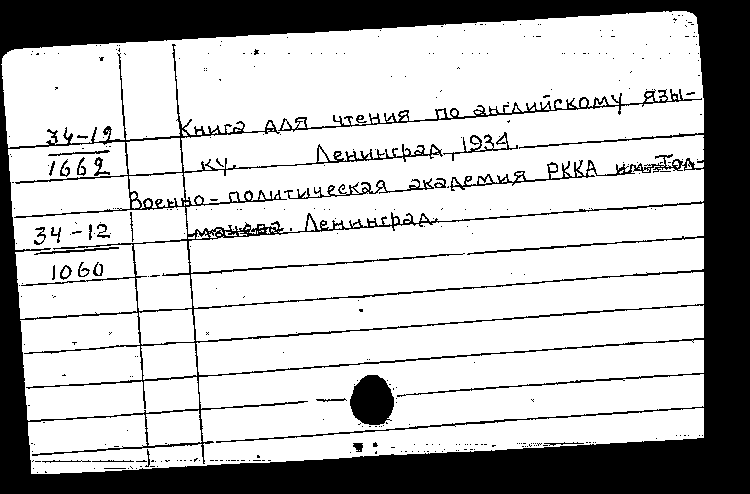 34-19
1662
Книга для чтения по английскому язы-
ку. Ленинград, 1934.
Военно=политическая академия РККА им. Тол-
мачева. Ленинград.
34-12
1060